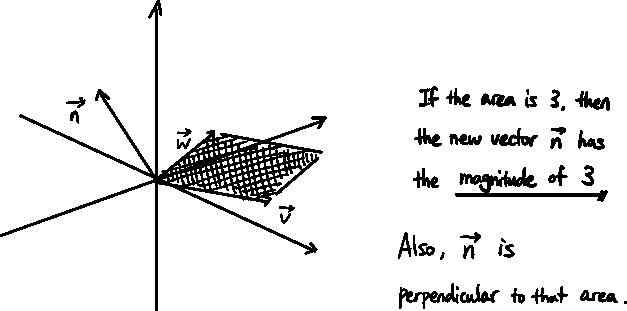 n⃗
w⃗
v⃗
If the area is 3, then
the new vector n⃗ has
the magnitude of 3
Also, n⃗ is
perpendicular to that area.